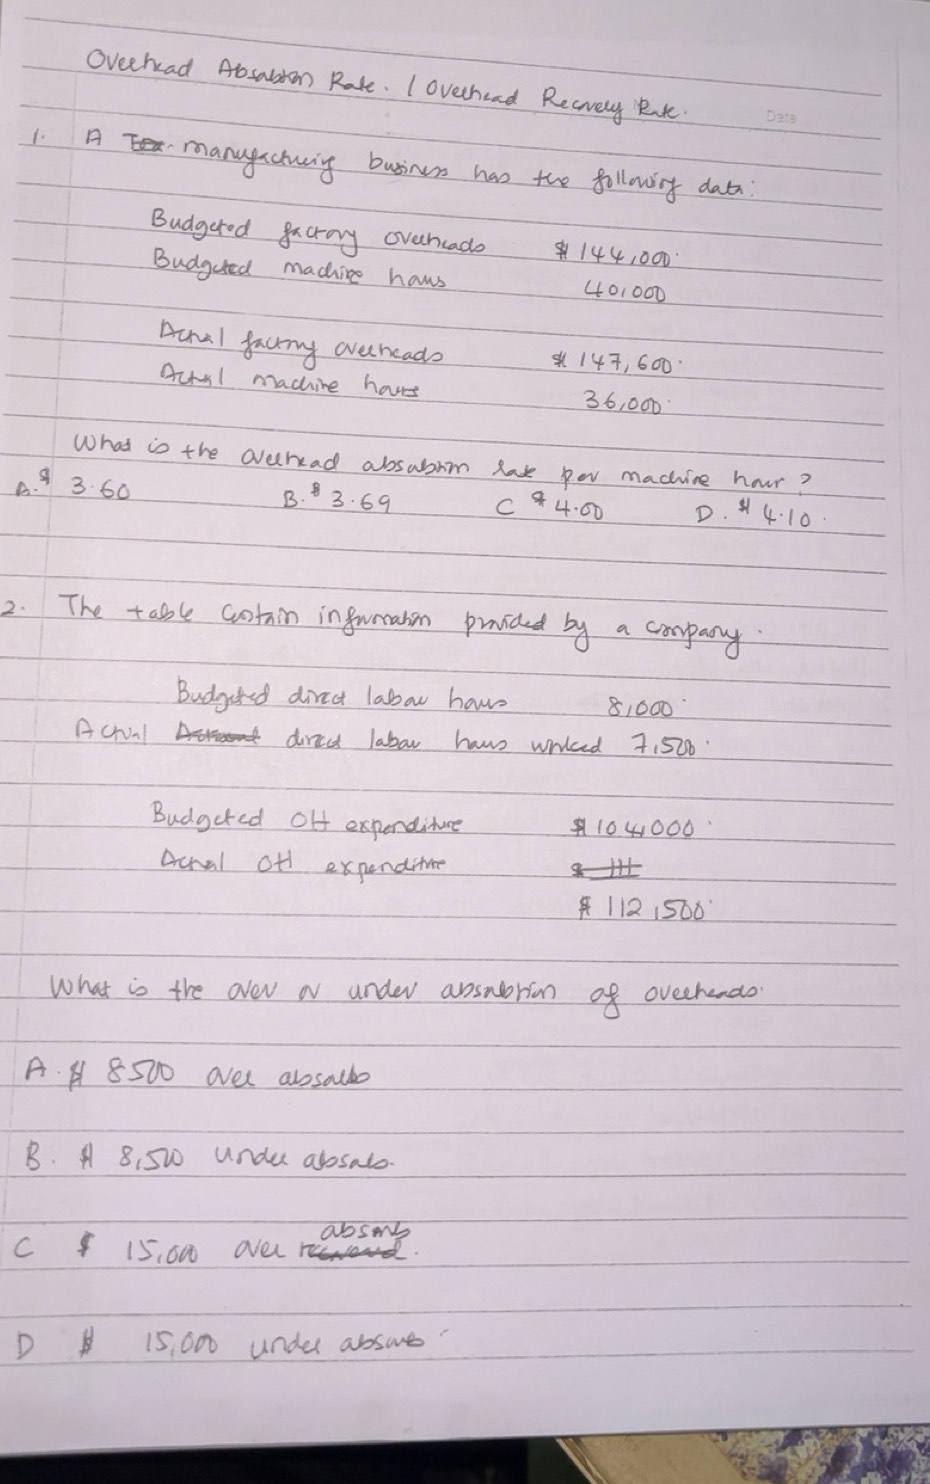 Overhead Absorption Rate. / Overhead Recovery Rate.
Date
1. A manufacturing business has the following data:
Budgeted factory overheads $ 144,000
Budgeted machine hours 40,000
Actual factory overheads $ 147,600
Actual machine hours 36,000
What is the overhead absorption rate per machine hour?
A. $ 3.60 B. $ 3.69 C $ 4.00 D. $ 4.10
2. The table contain information provided by a company.
Budgeted direct labour hours 8,000
Actual direct labour hours worked 7,500
Budgeted OH expenditure $ 104,000
Actual OH expenditure
$ 112,500
What is the over or under absorption of overheads
A. $ 8500 over absorb
B. $ 8,500 under absorb.
C $ 15,000 over absorb.
D $ 15,000 under absorb